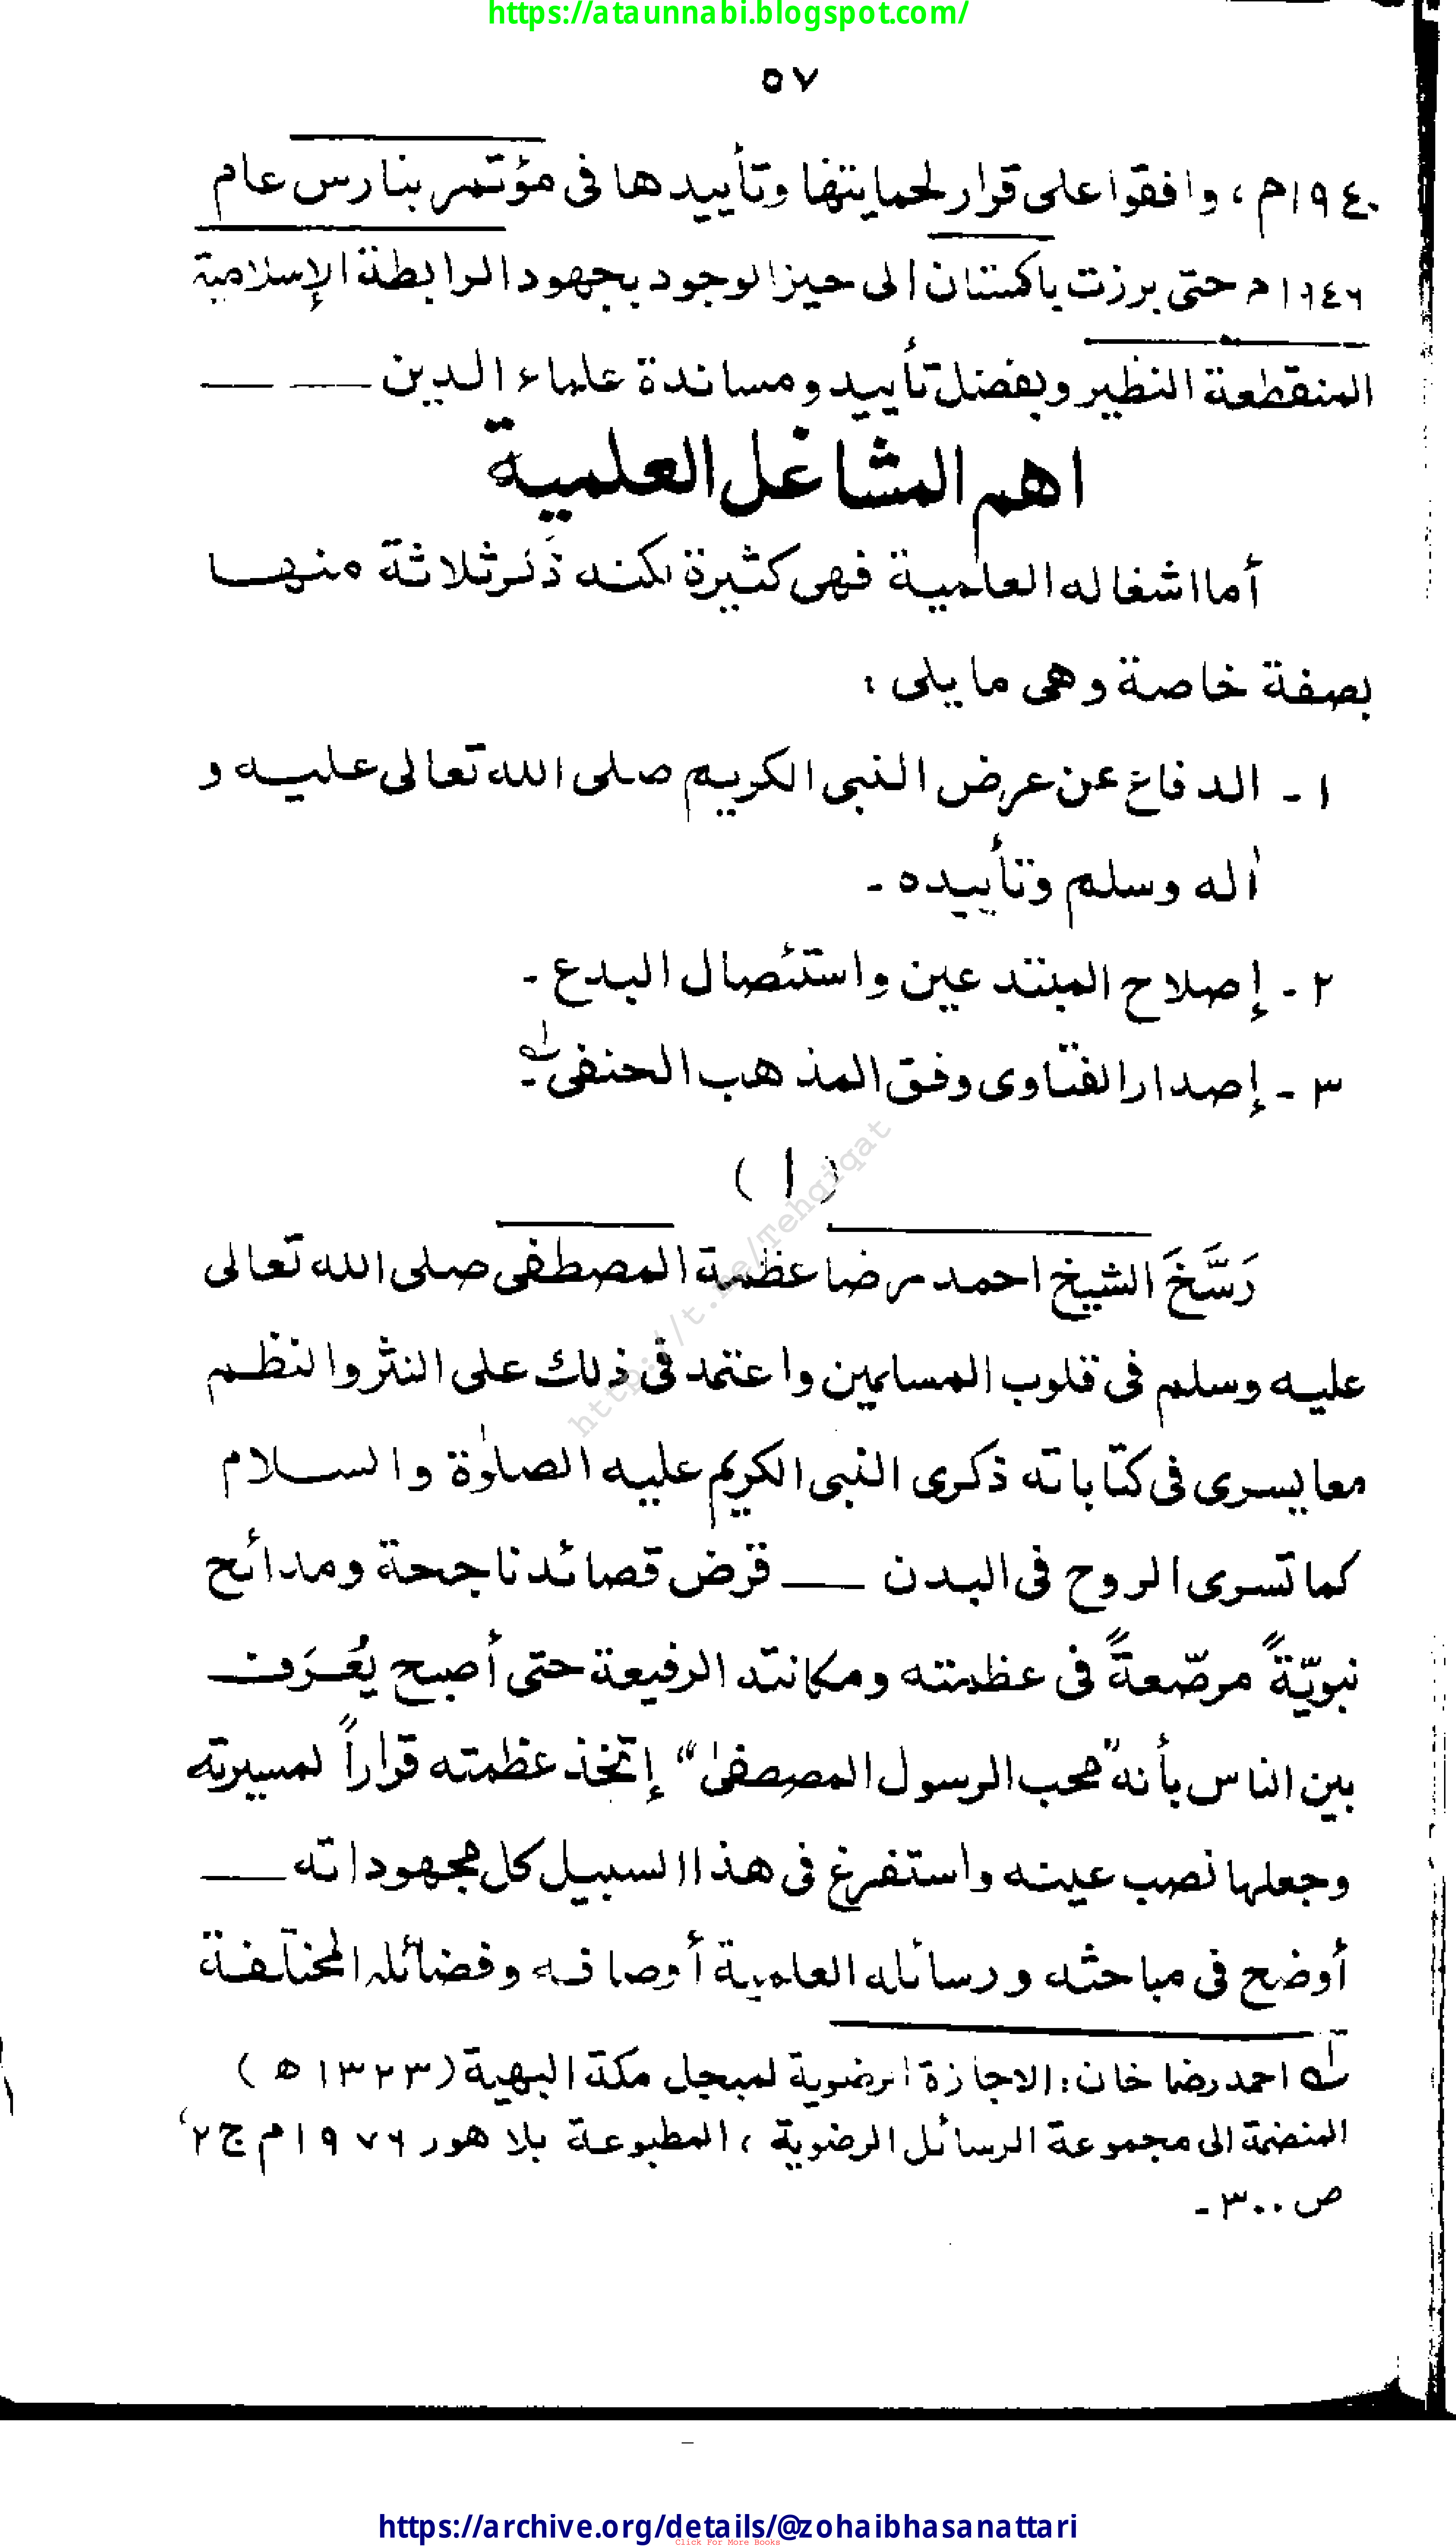 https://ataunnabi.blogspot.com/
٥٧
١٩٤٠م، وافقوا على قرار لحمايتها وتأييدها فى مؤتمر بنارس عام
١٩٤٦م حتى برزت باكستان الى حيز الوجود بجهود الرابطة الإسلامية
المنقطعة النظير وبفضل تأييد ومساندة علماء الدين ——
اهم المشاغل العلمية
أما اشغاله العلمية فهى كثيرة لكنه ذكر ثلاثة منها
بصفة خاصة وهى ما يلى :
١ - الدفاع عن عرض النبى الكريم صلى الله تعالى عليه و
اٰله وسلم وتأييده -
٢ - إصلاح المبتدعين واستئصال البدع -
٣ - إصدار الفتاوى وفق المذهب الحنفى لـه -
( ١ )
رَسَّخَ الشيخ احمد رضا عظمة المصطفى صلى الله تعالى
عليه وسلم فى قلوب المسلمين واعتمد فى ذلك على النثر والنظم
معا يسرى فى كتاباته ذكرى النبى الكريم عليه الصلوٰة والسلام
كما تسرى الروح فى البدن — قرض قصائد ناجحة ومدائح
نبويّةً مرصّعةً فى عظمته ومكانته الرفيعة حتى أصبح يُعرَف
بين الناس بأنه "محب الرسول المصطفىٰ" إتخذ عظمته قراراً لمسيرته
وجعلها نصب عينه واستفرغ فى هذا السبيل كل مجهوداته —
أوضح فى مباحثه ورسائله العلمية أوصافه وفضائله المختلفة
لـه احمد رضا خان : الاجازة الرضوية لمبجل مكة البهية (١٣٢٣ھ)
المنضمة الى مجموعة الرسائل الرضوية ، المطبوعة بلاهور ١٩٧٦م ج ٢،
ص ٣٠٠ -
http://t.me/Tehqiqat
https://archive.org/details/@zohaibhasanattari
Click For More Books